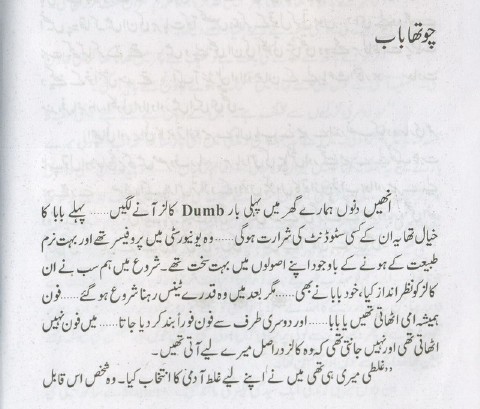 چوتھا باب
انھیں دنوں ہمارے گھر میں پہلی بار Dumb کالز آنے لگیں...... پہلے بابا کا
خیال تھا یہ ان کے کسی سٹوڈنٹ کی شرارت ہو گی...... وہ یونیورسٹی میں پروفیسر تھے اور بہت نرم
طبیعت کے ہونے کے باوجود اپنے اصولوں میں بہت سخت تھے۔ شروع میں ہم سب نے ان
کالز کو نظر انداز کیا، خود بابا نے بھی...... مگر بعد میں وہ قدرے ٹینس رہنا شروع ہو گئے...... فون
ہمیشہ امی اٹھاتی تھیں یا بابا...... اور دوسری طرف سے فون فوراً بند کر دیا جاتا...... میں فون نہیں
اٹھاتی تھی اور نہیں جانتی تھی کہ وہ کالز دراصل میرے لیے آتی تھیں۔
”غلطی میری ہی تھی میں نے اپنے لیے غلط آدمی کا انتخاب کیا۔ وہ شخص اس قابل